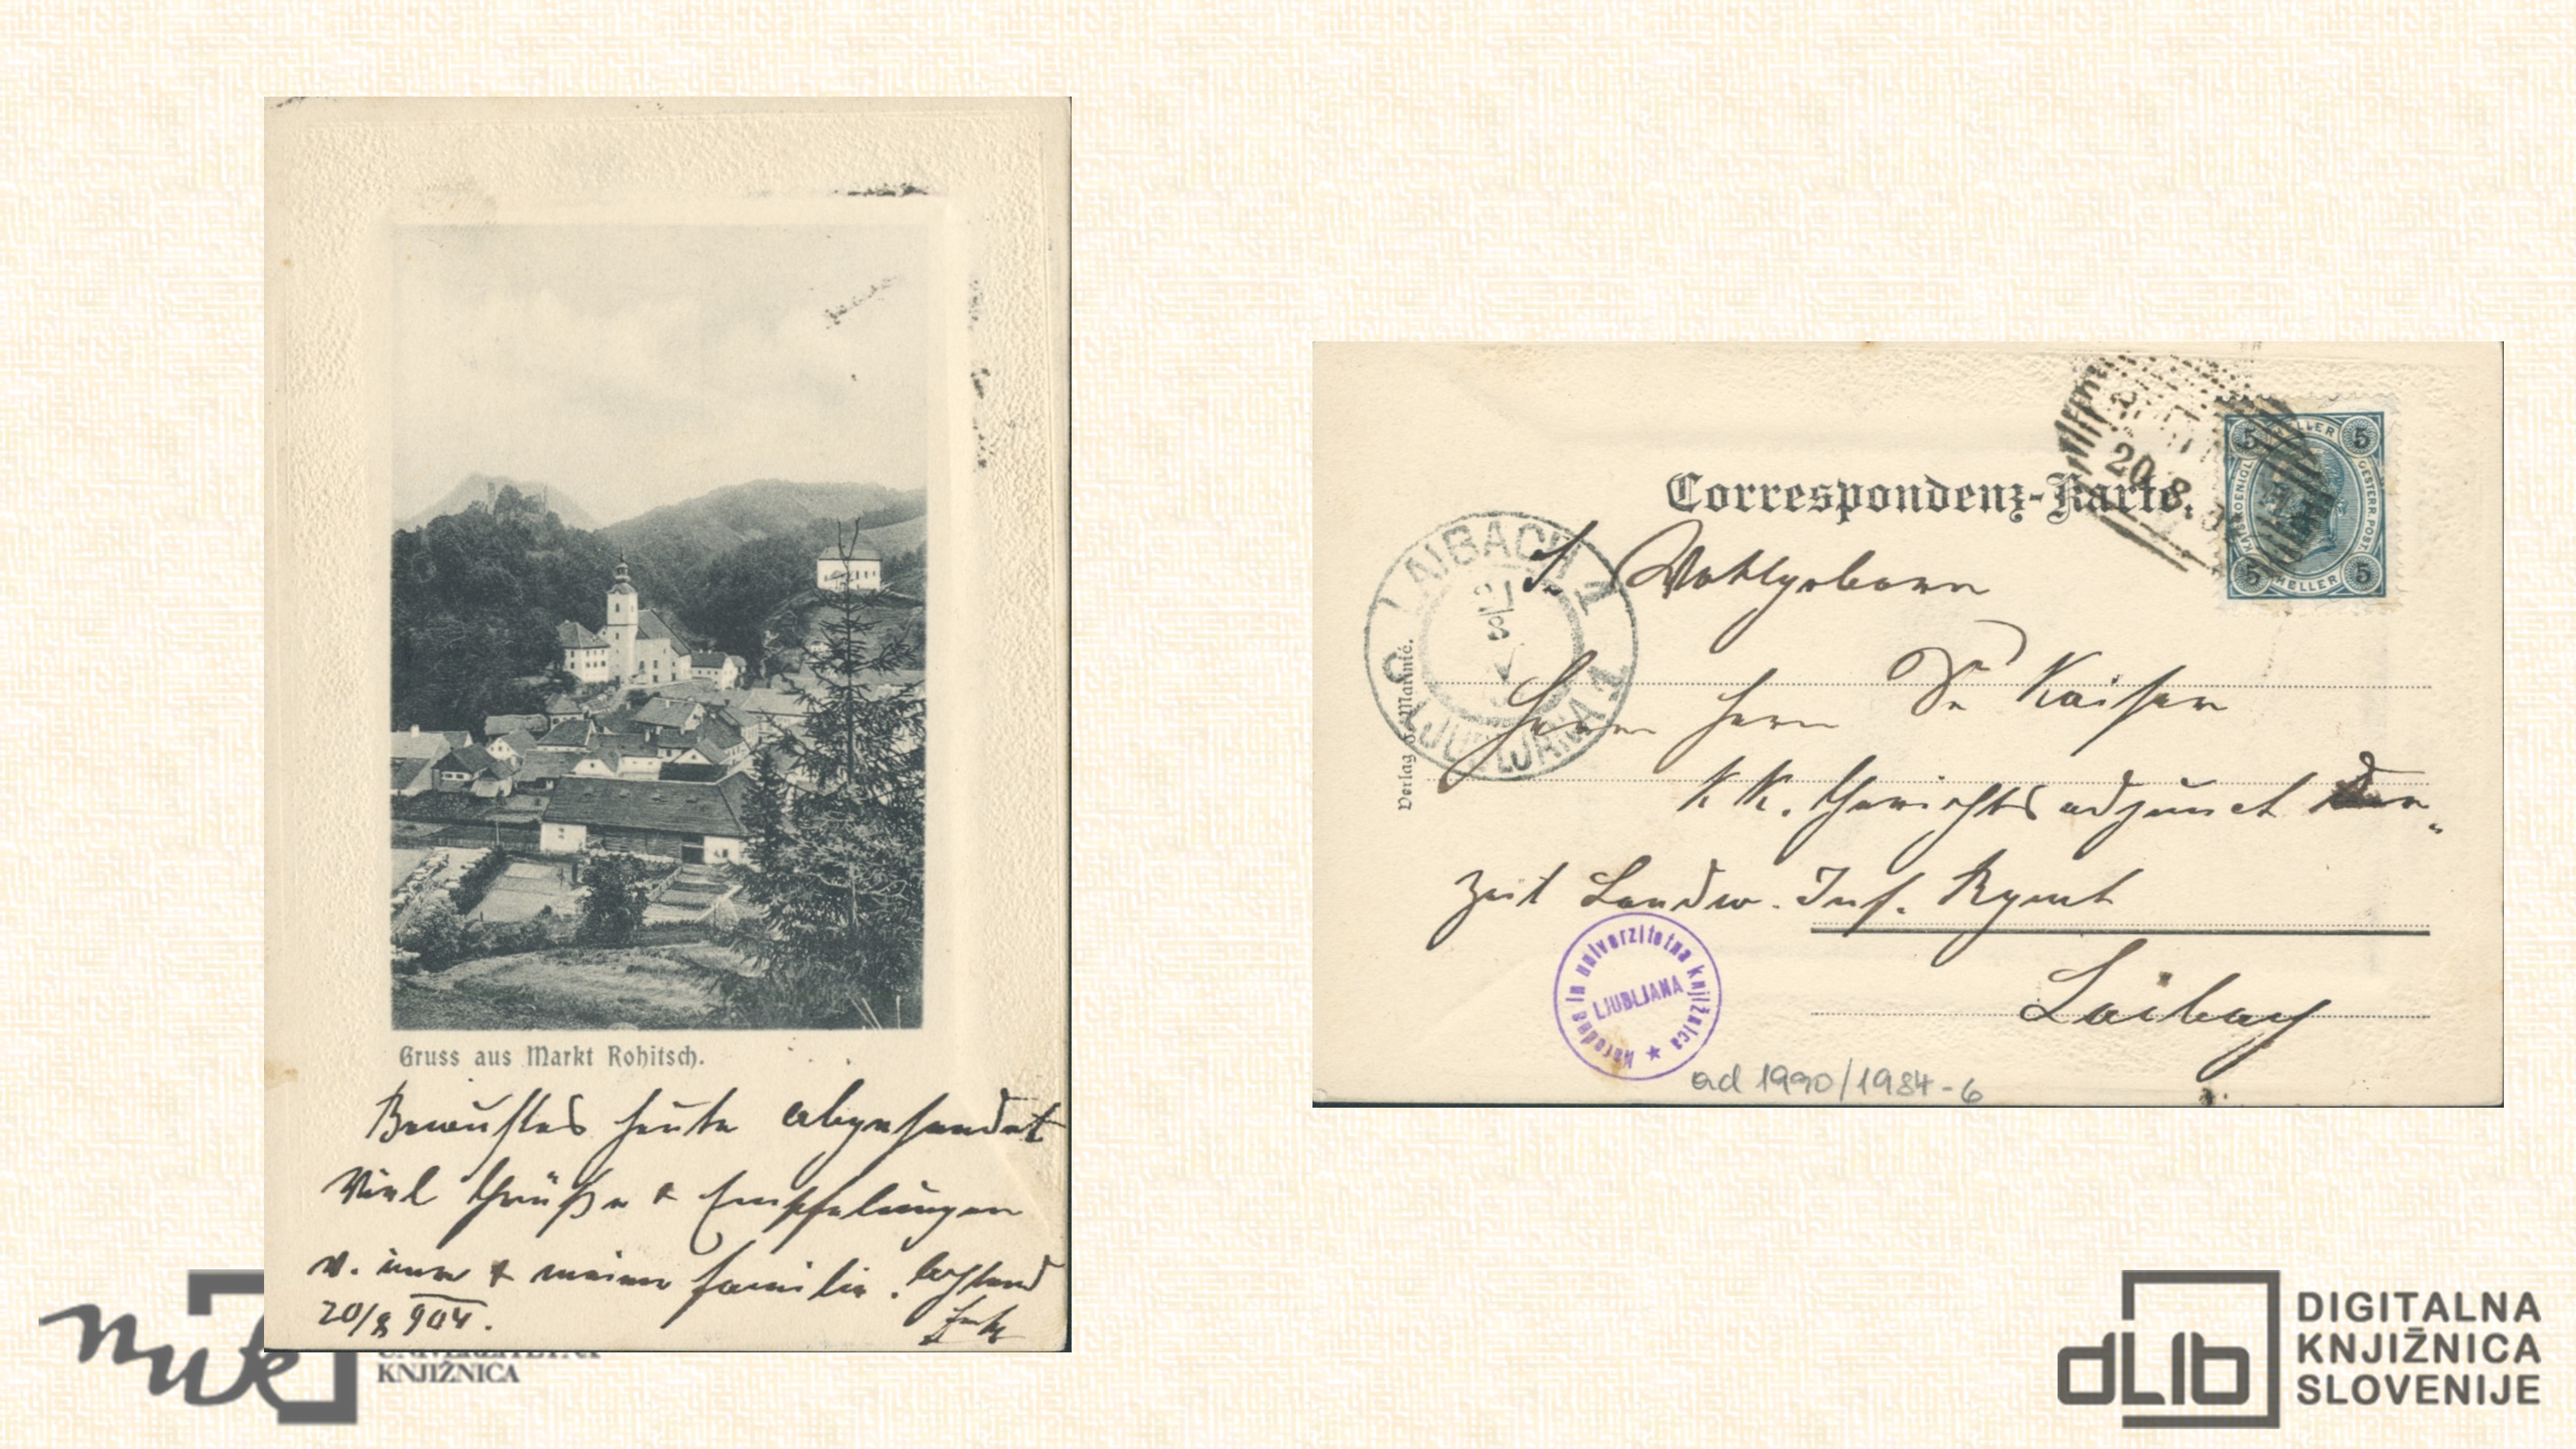 Gruss aus Markt Rohitsch.
Bewußtes heute abgesendet
Viel Grüße & Empfelungen
v. mir & meiner Familie. Achtend
20/8 904.
Correspondenz-Karte.
20 8
5 HELLER 5
KAIS. KOENIGL. OESTER. POST.
5 HELLER 5
LAIBACH 1
LJUBLJANA 1
Sr. Wohlgeboren
Herrn Herrn Dr Kaiser
K K. Gerichtsadjunct der„
zeit Landw. Inf. Rgmt
Laibach
Verlag v. Marinić.
Narodna in univerzitetna knjižnica
LJUBLJANA
ad 1990/1984-6
nuk
KNJIŽNICA
dLib
DIGITALNA
KNJIŽNICA
SLOVENIJE